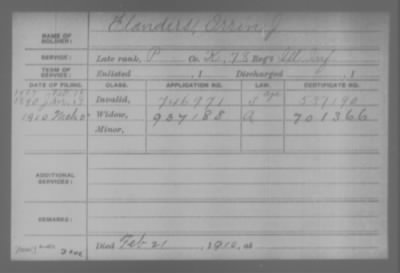 Flanders, Orrin J
NAME OF SOLDIER:
SERVICE: Late rank, P Co. K, 73 Reg't Ill Inf
TERM OF SERVICE: Enlisted , 1 Discharged , 1
DATE OF FILING. CLASS. APPLICATION NO. LAW. CERTIFICATE NO.
Invalid, 746971 537190
1910 Mch Widow, 937188 A 701366
Minor,
ADDITIONAL SERVICES:
REMARKS:
Died Feb 21 , 1910, at